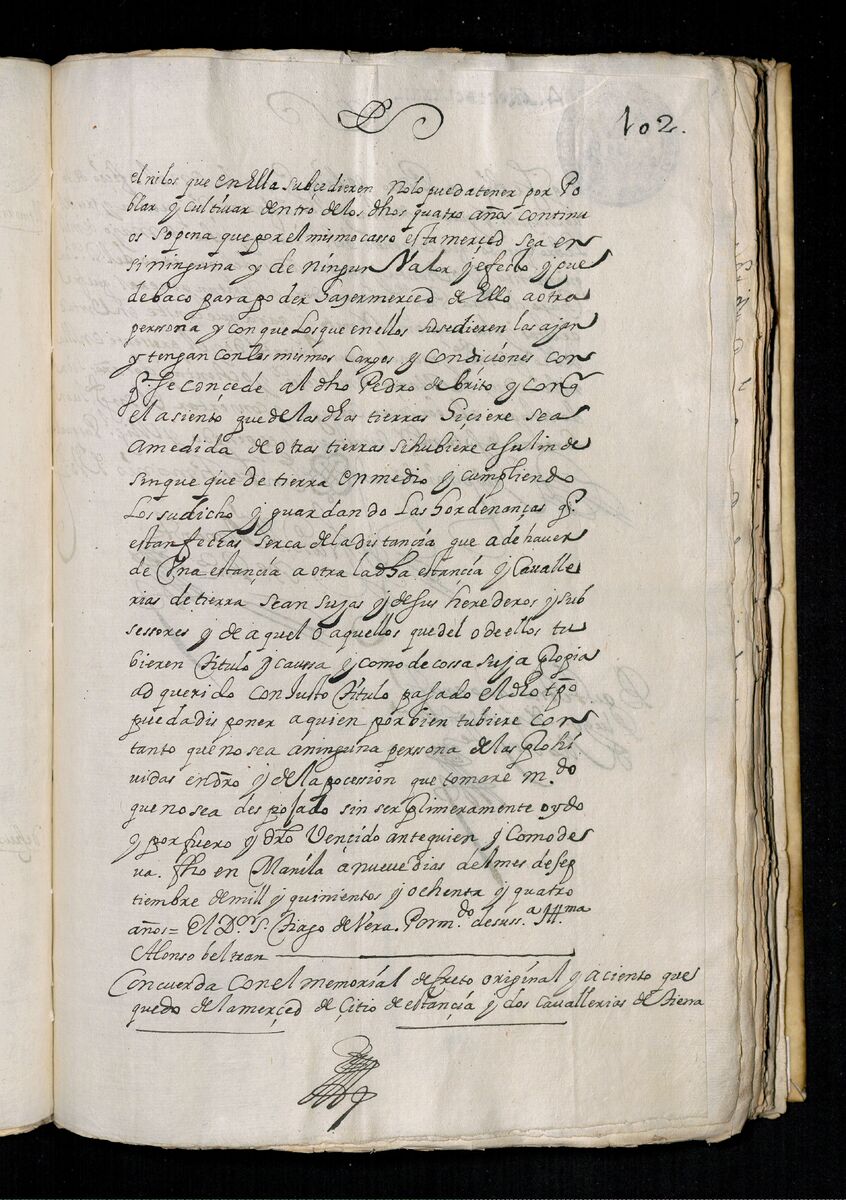 102.
el ni los que en Ella subcedieren no lo pueda tener por Po
blar y cultivar dentro de los dhos quatro años continu
os so pena que por el mismo casso esta merced sea en
si ninguna y de ningun Valor y efecto y que
de baco para poder hazer merced de Ello a otra
persona y con que los que en ellos subsedieren las ajan
y tengan con los mismos Cargos y condiciones con
q. se concede al dho Pedro de brito y con q
el asiento que de las dhas tierras hiçiere sea
a medida de otras tierras si hubiere a su linde
sin que que de tierra en medio y cumpliendo
Lo sudicho y guardando las hordenanças q.
estan fechas serca de la distancia que a de haver
de Una estancia a otra la dha estancia y Cavalle
rias de tierra sean sujas y de sus herederos y sub
sessores y de aquel o aquellos que del o de ellos tu
bieren titulo y caussa y como de cossa suja propia
adquerido con Justo titulo pasado el dho tpo
pueda dis poner a quien por bien tubiere con
tanto que no sea a ninguna persona de las prohi
vidas en dro y de la pocession que tomare m.do
que no sea despojado sin ser primeramente oydo
y por fuero y dro Vencido ante quien y como de
va. fho en Manila a nueve dias del mes de sep
tiembre de mill y quinientos y ochenta y quatro
años= El D.or S. tiago de Vera. Por m.do de su s.a Ill.ma
Alonso beltran
Concuerda con el memorial decreto original y aciento que
quedo de la merçed de çitio de estançia y dos cavallerias de tierra